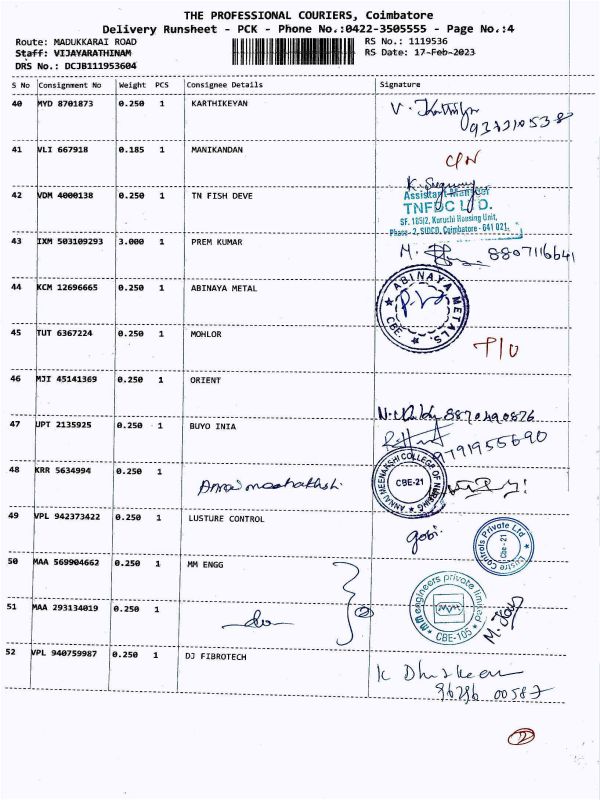 THE PROFESSIONAL COURIERS, Coimbatore
Delivery Runsheet - PCK - Phone No.:0422-3505555 - Page No.:4
Route: MADUKKARAI ROAD RS No.: 1119536
Staff: VIJAYARATHINAM RS Date: 17-Feb-2023
DRS No.: DCJB111953604
S No Consignment No Weight PCS Consignee Details Signature
40 MYD 8701873 0.250 1 KARTHIKEYAN
41 VLI 667918 0.185 1 MANIKANDAN
42 VDM 4000138 0.250 1 TN FISH DEVE
Assistant Manager
TNFDC LTD.
SF. 105/2, Kurichi Housing Unit,
Phase - 2, SIDCO, Coimbatore - 641 021.
43 IXM 503109293 3.000 1 PREM KUMAR
8807116641
44 KCM 12696665 0.250 1 ABINAYA METAL
ABINAYA METALS. CBE.
45 TUT 6367224 0.250 1 MOHLOR
46 MJI 45141369 0.250 1 ORIENT
47 UPT 2135925 0.250 1 BUYO INIA
9791955690
48 KRR 5634994 0.250 1
ANNAI MEENAKSHI COLLEGE OF NURSING CBE-21
49 VPL 942373422 0.250 1 LUSTURE CONTROL
gobi
Lustre Controls Private Ltd Cbe-21
50 MAA 569904662 0.250 1 MM ENGG
m.m engineers private limited CBE-105
51 MAA 293134019 0.250 1
52 VPL 940759987 0.250 1 DJ FIBROTECH
96296 00587